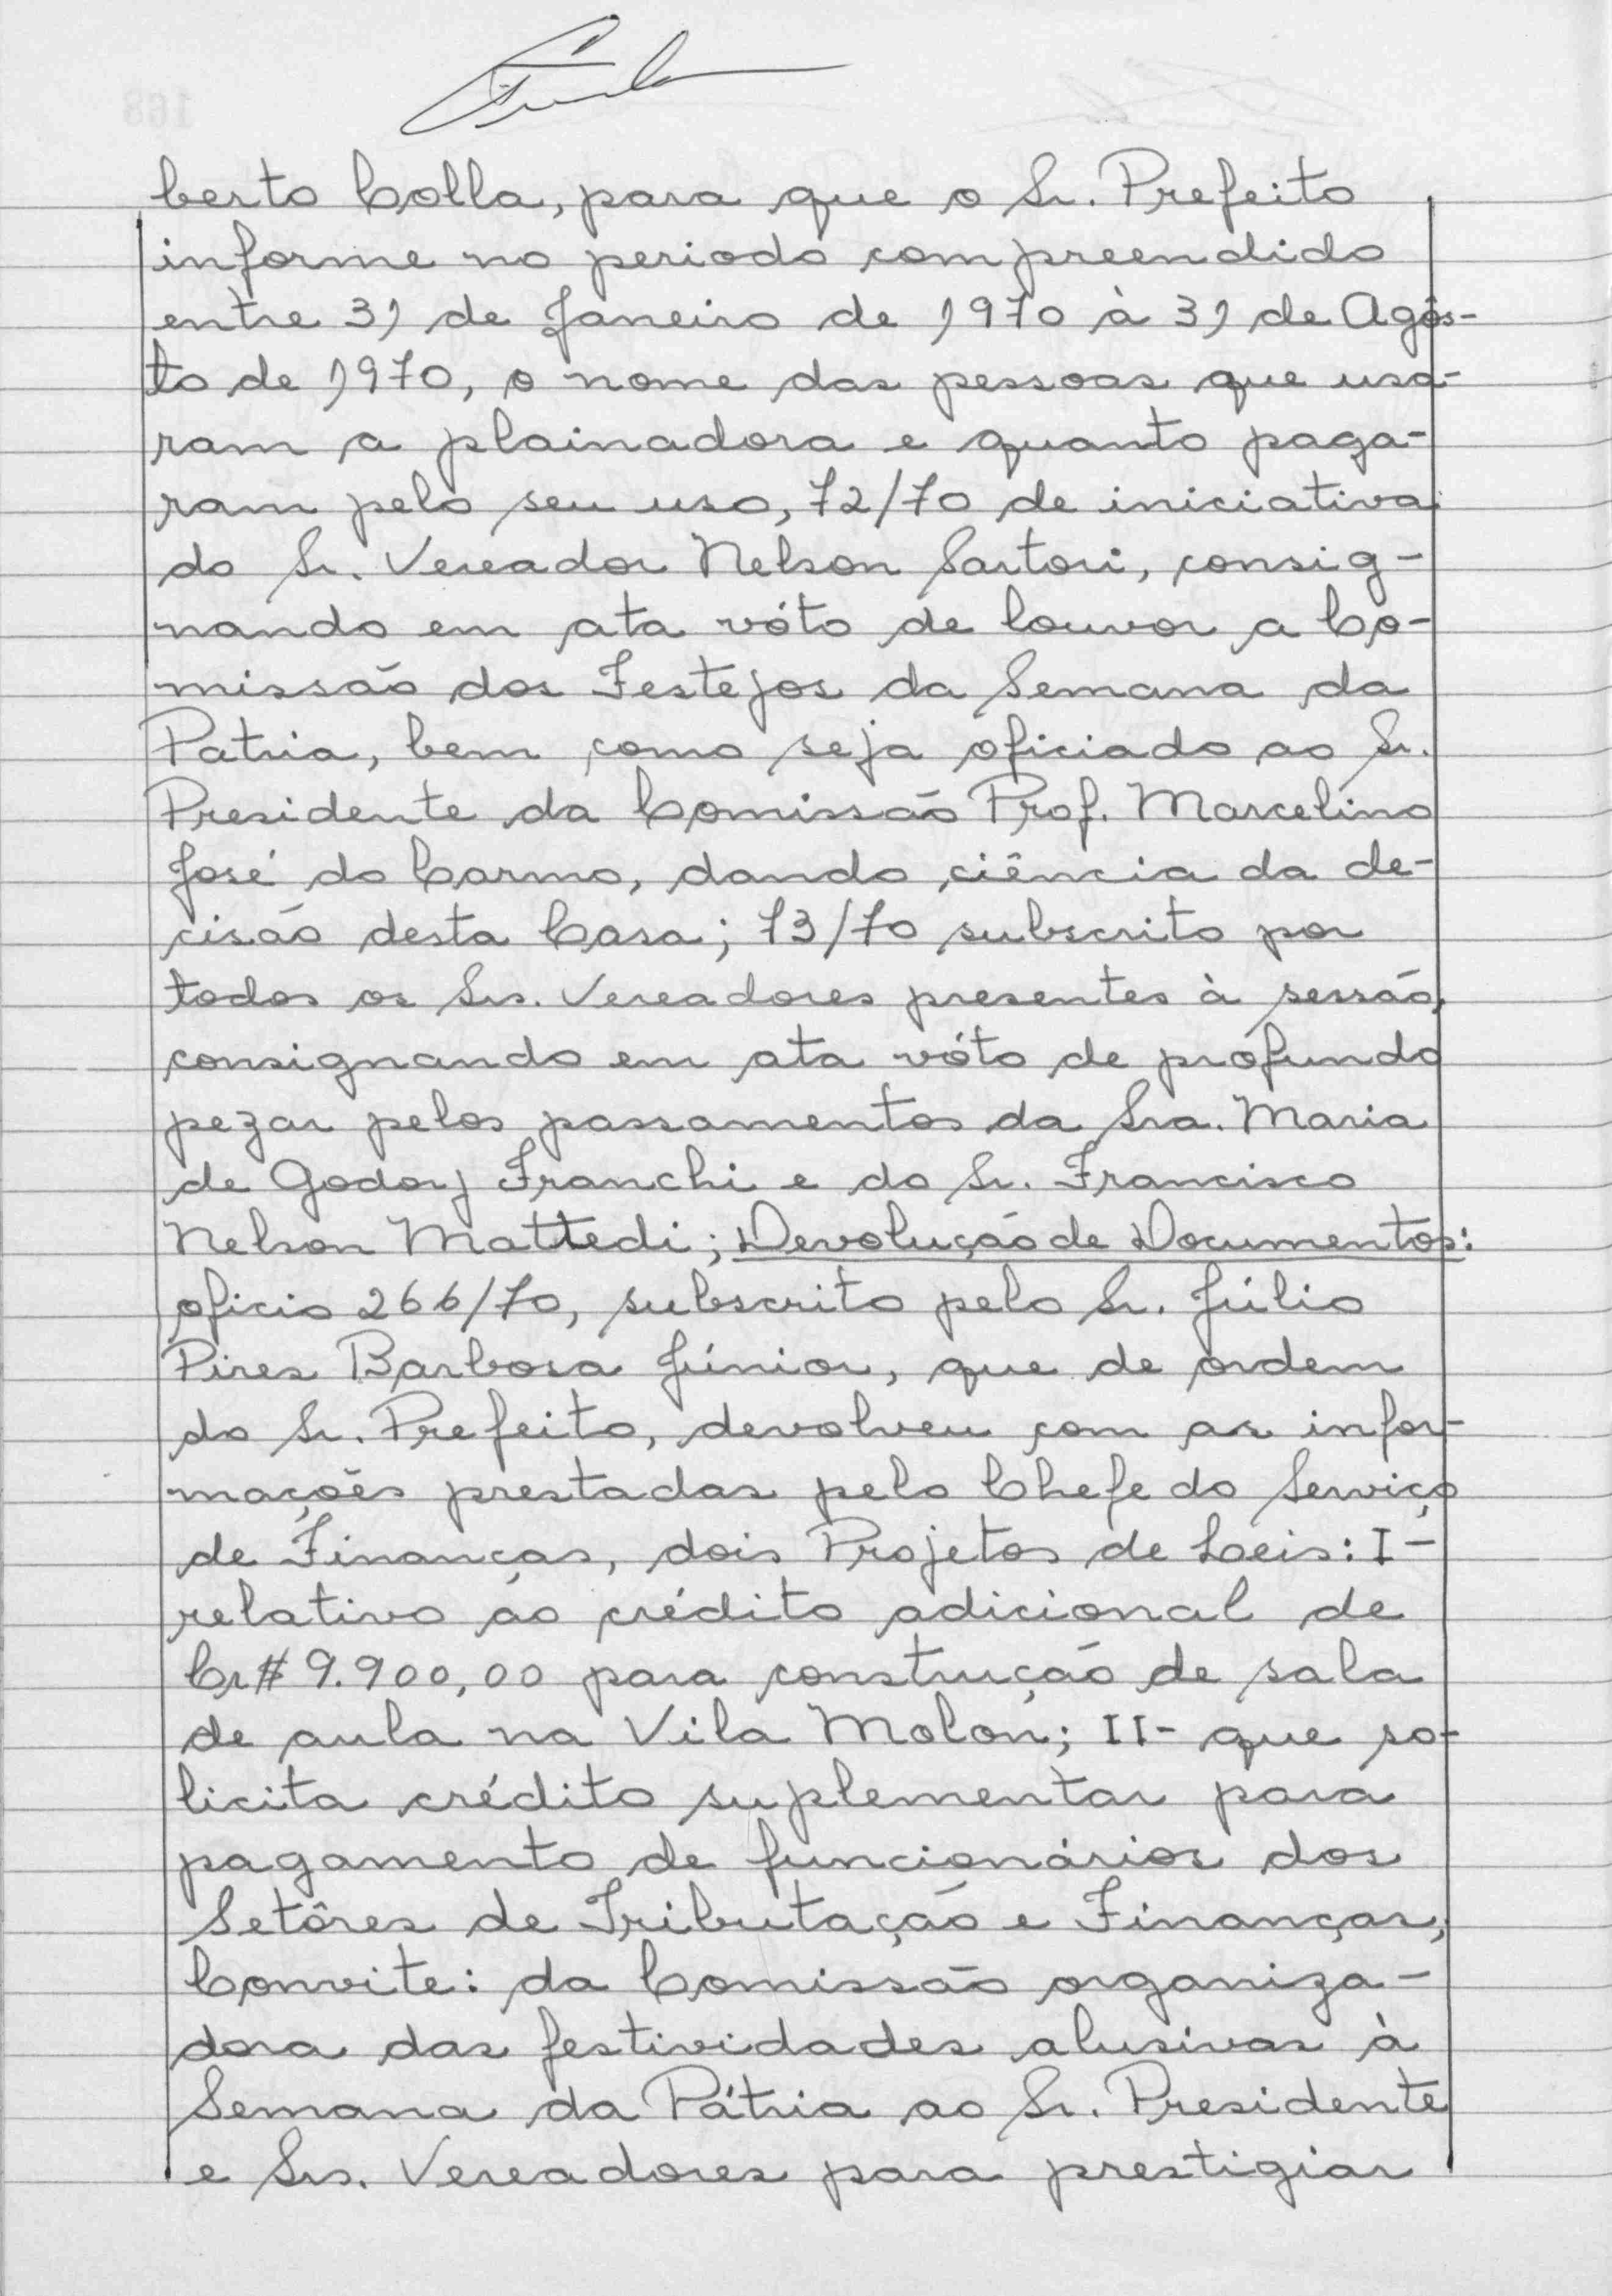 berto Colla, para que o Sr. Prefeito
informe no periodo compreendido
entre 31 de Janeiro de 1970 à 31 de Agôs-
to de 1970, o nome das pessoas que usa-
ram a plainadora e quanto paga-
ram pelo seu uso, 72/70 de iniciativa
do Sr. Vereador Nelson Sartori, consig-
nando em ata vóto de louvor a Co-
missão dos Festejos da Semana da
Patria, bem como seja oficiado ao Sr.
Presidente da Comissão Prof. Marcelino
José do Carmo, dando ciência da de-
cisão desta Casa; 73/70 subscrito por
todos os Srs. Vereadores presentes à sessão,
consignando em ata vóto de profundo
pezar pelos passamentos da Sra. Maria
de Godoy Franchi e do Sr. Francisco
Nelson Mattedi; Devolução de Documentos:
oficio 266/70, subscrito pelo Sr. Júlio
Pires Barbosa Júnior, que de ordem
do Sr. Prefeito, devolveu com as infor-
mações prestadas pelo Chefe do Serviço
de Finanças, dois Projetos de Leis: I-
relativo ao crédito adicional de
Cr$ 9.900,00 para construção de sala
de aula na Vila Molon; II- que so-
licita crédito suplementar para
pagamento de funcionários dos
Setôres de Tributação e Finanças,
Convite: da Comissão organiza-
dora das festividades alusivas à
Semana da Pátria ao Sr. Presidente
e Srs. Vereadores para prestigiar